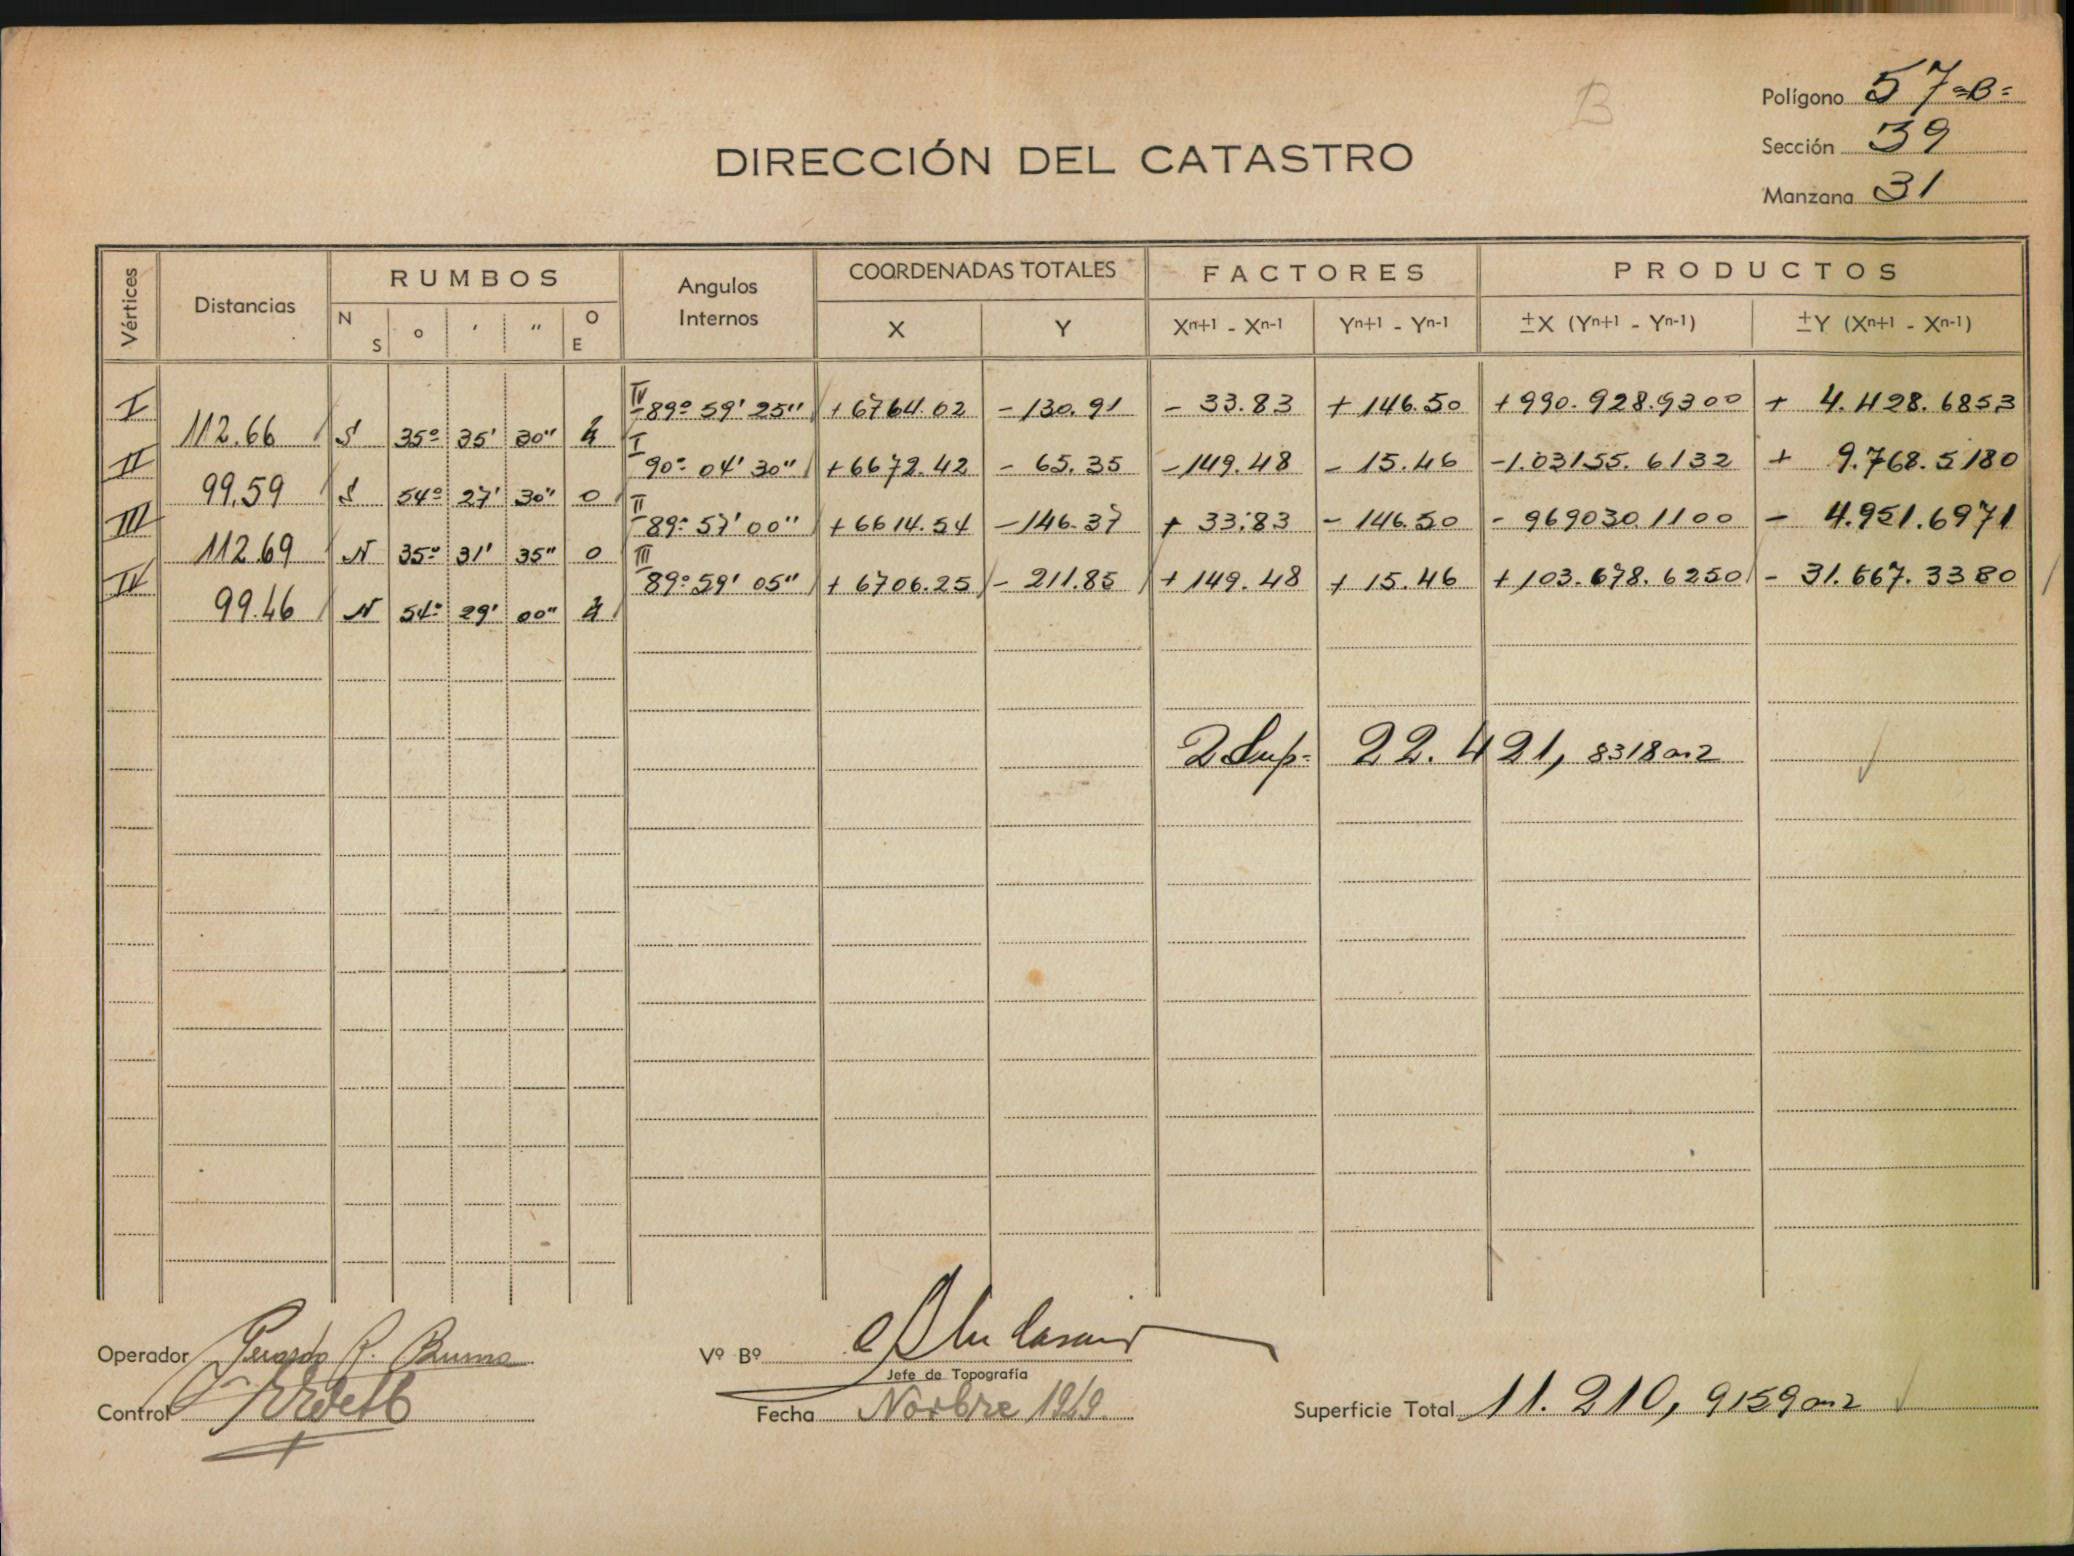 B
Polígono 57=B=
Sección 39
Manzana 31
DIRECCIÓN DEL CATASTRO
Vértices Distancias RUMBOS Angulos Internos COORDENADAS TOTALES FACTORES PRODUCTOS
N S o ' " O E X Y Xn+1 - Xn-1 Yn+1 - Yn-1 ±X (Yn+1 - Yn-1) ±Y (Xn+1 - Xn-1)
I IV 89º 59' 25" +6764.02 -130.91 - 33.83 +146.50 +990.928.9300 + 4.428.6853
112.66 S 35º 35' 30" E
II I 90º 04' 30" +6672.42 - 65.35 -149.48 - 15.46 -1.03155.6132 + 9.768.5180
99.59 S 54º 27' 30" O
III II 89º 57' 00" +6614.54 -146.37 + 33.83 - 146.50 - 969030 1100 - 4.951.6971
112.69 N 35º 31' 35" O
IV III 89º 59' 05" + 6706.25 - 211.85 + 149.48 + 15.46 + 103.678.6250 - 31.667.3380
99.46 N 54º 29' 00" E
2 Sup= 22.421, 8318 m2
Operador Gerardo R.
Vº Bº
Jefe de Topografía
Control
Fecha Novbre 1949.
Superficie Total 11.210, 9159 m2